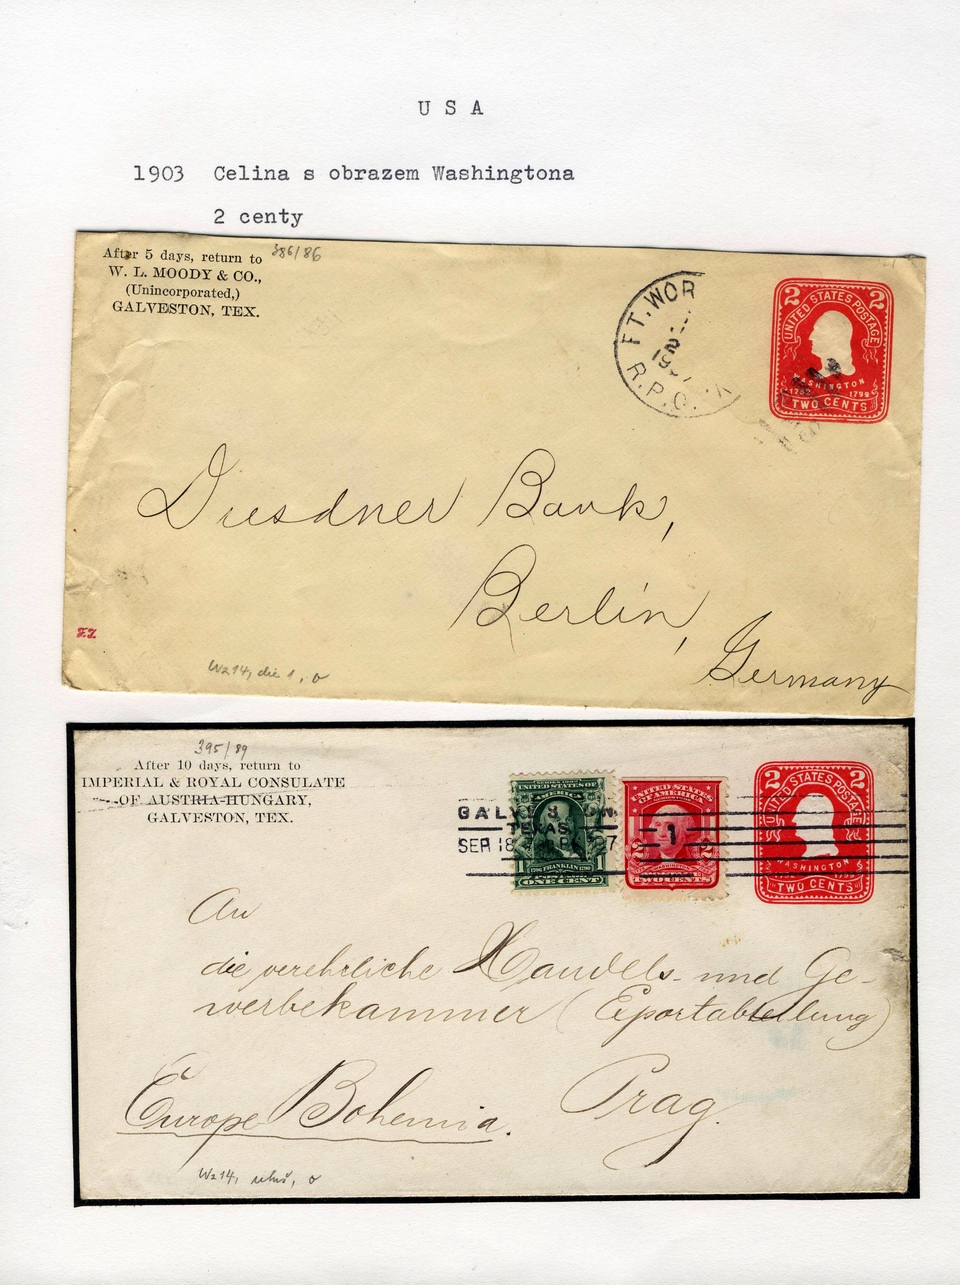 USA
1903 Celina s obrazem Washingtona
2 centy
386/86
After 5 days, return to
W. L. MOODY & CO.,
(Unincorporated,)
GALVESTON, TEX.
FT. WOR
R.P.O.
2 2
UNITED STATES POSTAGE
WASHINGTON
1732 1799
TWO CENTS
Dresdner Bank,
Berlin,
Germany
Wz14, die 1, o
395/89
After 10 days, return to
IMPERIAL & ROYAL CONSULATE
OF AUSTRIA-HUNGARY,
GALVESTON, TEX.
TEXAS.
SEP 18
1
UNITED STATES OF AMERICA
FRANKLIN
1 1
ONE CENT
UNITED STATES
OF AMERICA
2 2
2 2
UNITED STATES POSTAGE
WASHINGTON
TWO CENTS
An
die verehrliche Handels- und Ge-
werbekammer (Exportabteilung)
Prag.
Europe Bohemia.
Wz14,